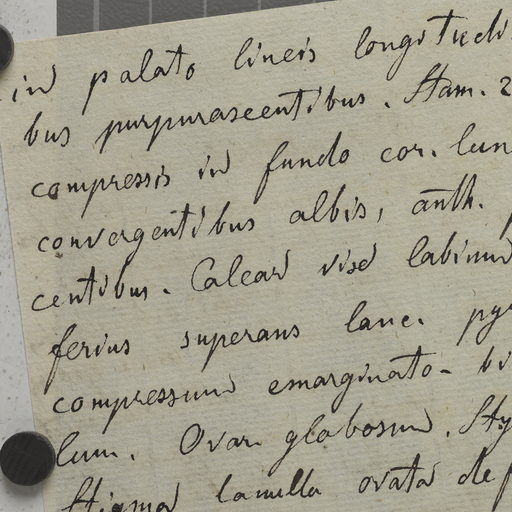 in palato lineis longitudi
bus purpurascentibus. Stam. 2
compressis in fundo cor. lun
convergentibus albis, anth. p
centibus. Calcar vise labium
ferius superans lanc. pyr
compressum emarginato- bi
lum. Ovar. globosum. Sty
Stigma lamella ovata dep